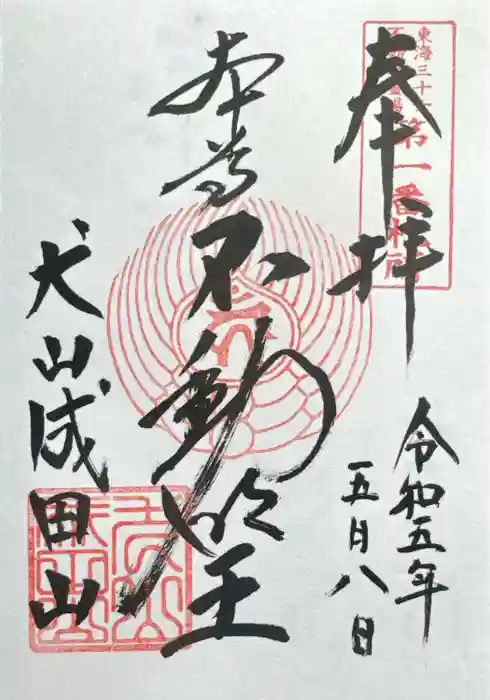 奉拝
東海三十六
不動霊場
第一番札所
令和五年
五月八日
本尊不動明王
犬山成田山